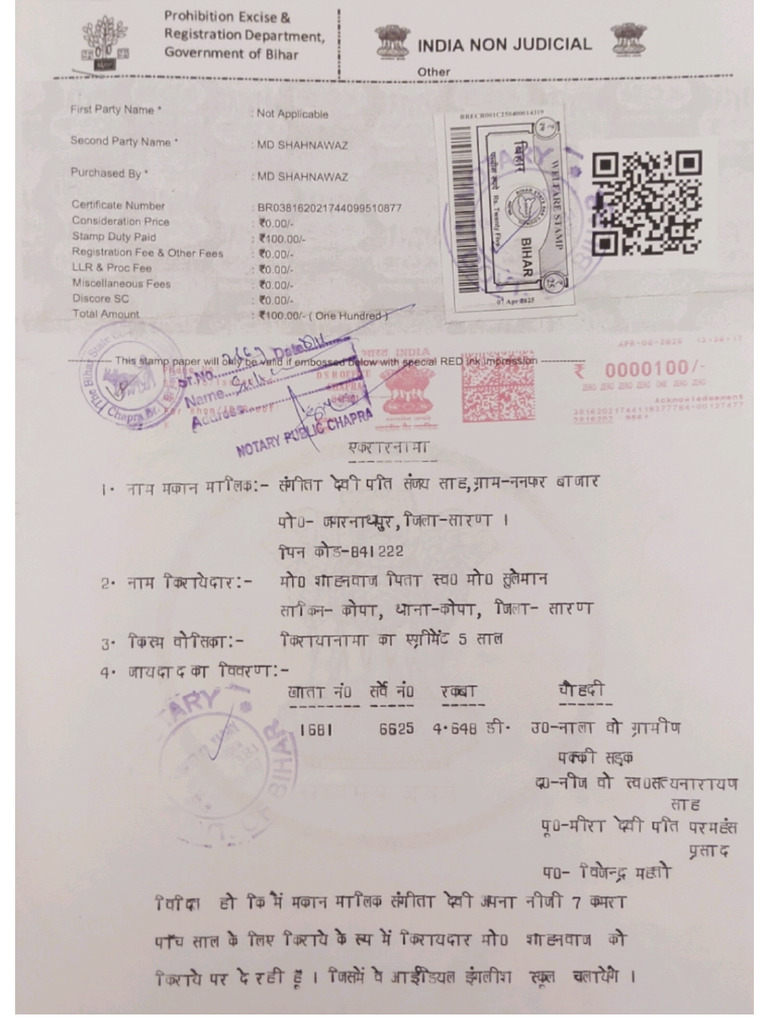 Prohibition Excise &
Registration Department,
Government of Bihar
INDIA NON JUDICIAL
Other
First Party Name * : Not Applicable
Second Party Name * : MD SHAHNAWAZ
Purchased By * : MD SHAHNAWAZ
Certificate Number : BR038162021744099510877
Consideration Price : ₹0.00/-
Stamp Duty Paid : ₹100.00/-
Registration Fee & Other Fees : ₹0.00/-
LLR & Proc Fee : ₹0.00/-
Miscellaneous Fees : ₹0.00/-
Discore SC : ₹0.00/-
Total Amount : ₹100.00/- ( One Hundred )
WELFARE STAMP
बिहार
BIHAR
Rs. Twenty Five
07 Apr 2025
This stamp paper will only be valid if embossed below with special RED ink impression
भारत INDIA
₹ 0000100/-
ZERO ZERO ZERO ZERO ONE ZERO ZERO
Acknowledgement
The Bihar State
Chapra
Sr.No. Date
Name
Address
NOTARY PUBLIC CHAPRA
एकरारनामा
1. नाम मकान मालिक:- संगीता देवी पति संजय साह,ग्राम-ननफर बाजार
पो0- जगरनाथपुर,जिला-सारण ।
पिन कोड-841222
2. नाम किरायेदार:- मो0 शाहनवाज पिता स्व0 मो0 सुलेमान
साकिन- कोपा, थाना-कोपा, जिला- सारण
3. किस्म वोसिका:- किरायानामा का एग्रीमेंट 5 साल
4. जायदाद का विवरण:-
खाता नं0 सर्वे नं0 रकबा चौहदी
1681 6625 4.648 डी. उ0-नाला वो ग्रामीण
पक्की सड़क
द0-नीज वो स्व0सत्यनारायण
साह
पू0-मीरा देवी पति परमहंस
प्रसाद
प0- विजेन्द्र महतो
NOTARY
BIHAR
विदित हो कि मैं मकान मालिक संगीता देवी अपना नीजी 7 कमरा
पाँच साल के लिए किराये के रूप में किरायदार मो0 शाहनवाज को
किराये पर दे रही हूँ । जिसमें वे आईडियल इंगलीश स्कूल चलायेंगे ।